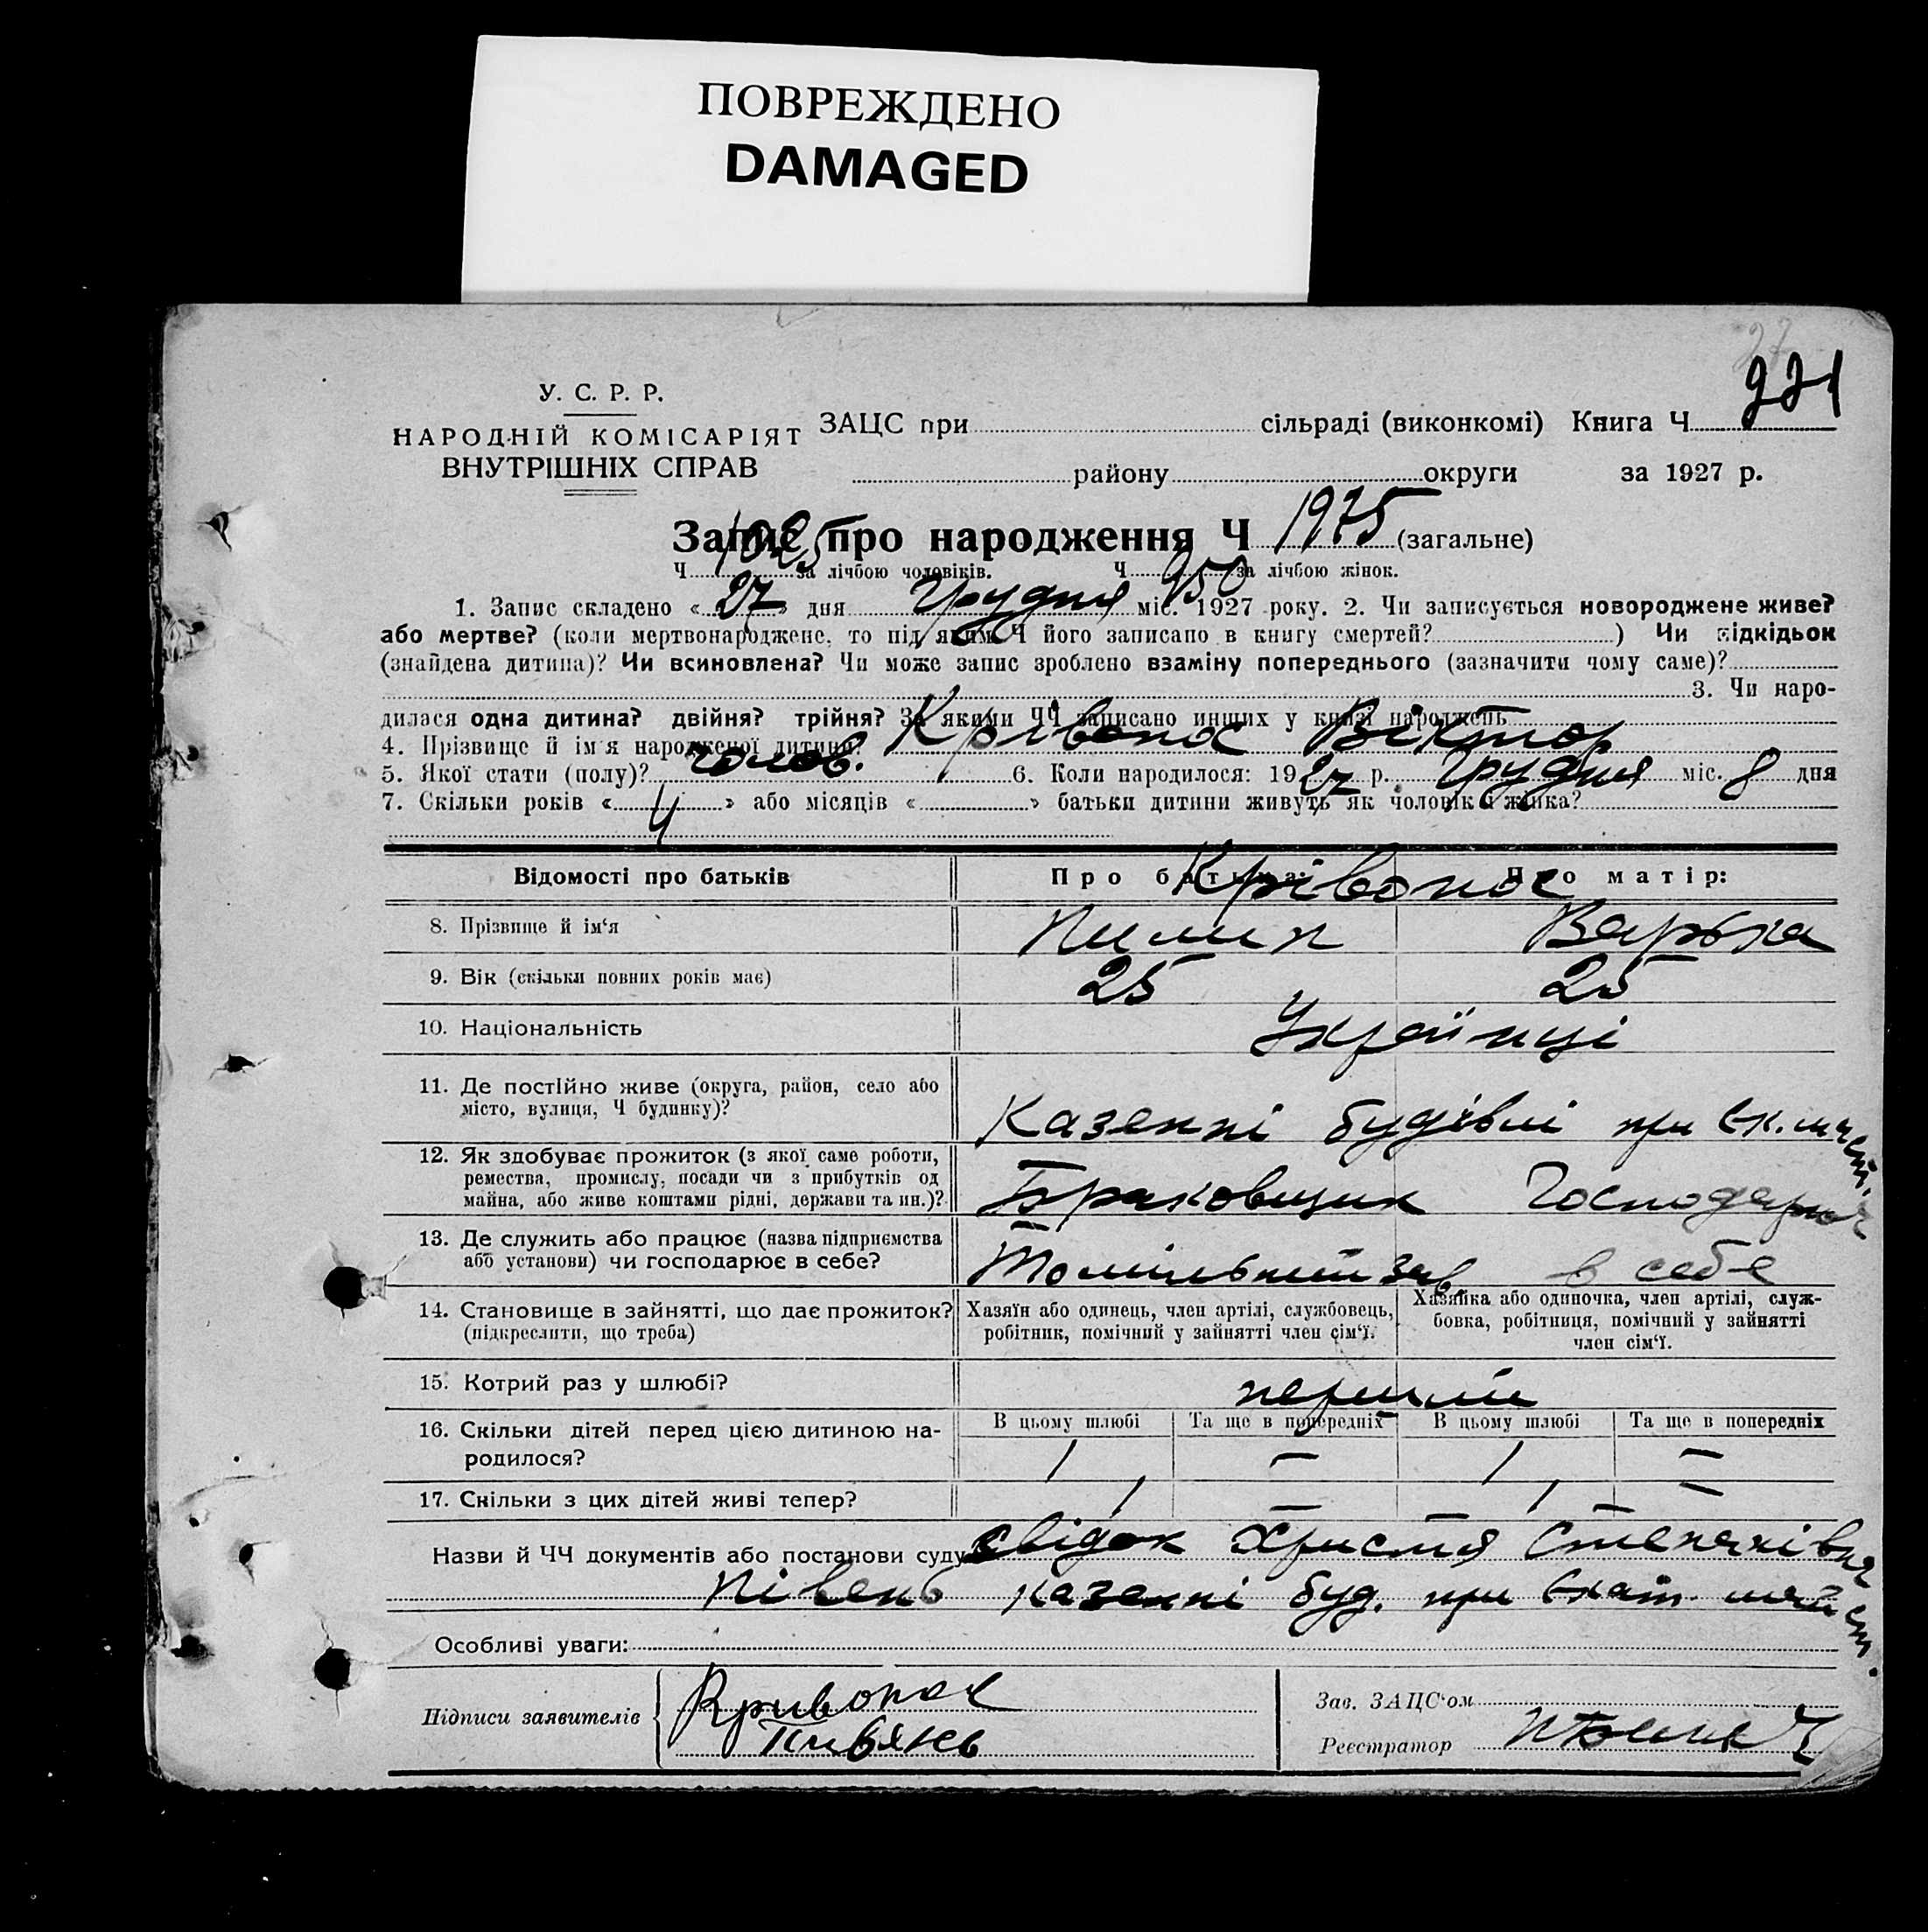 ПОВРЕЖДЕНО
DAMAGED
27
221
У. С. Р. Р.
НАРОДНІЙ КОМІСАРІЯТ
ВНУТРІШНІХ СПРАВ
ЗАЦС при сільраді (виконкомі) Книга Ч
району округи за 1927 р.
Запис про народження Ч 1975 (загальне)
Ч 1025 за лічбою чоловіків. Ч 950 за лічбою жінок.
1. Запис складено « 27 » дня Грудня міс. 1927 року. 2. Чи записується новороджене живе?
або мертве? (коли мертвонароджене, то під яким Ч його записано в книгу смертей? ) Чи підкідьок
(знайдена дитина)? Чи всиновлена? Чи може запис зроблено взаміну попереднього (зазначити чому саме)?
3. Чи наро-
дилася одна дитина? двійня? трійня? За якими ЧЧ записано инших у книзі народжень
4. Прізвище й ім'я народженої дитини? Крівонос Віктор
5. Якої стати (полу)? чолов. 6. Коли народилося: 1927 р. Грудня міс. 8 дня
7. Скільки років « 4 » або місяців « » батьки дитини живуть як чоловік й жінка?
Відомості про батьків Про батька: Про матір:
Крівонос
8. Прізвище й ім'я Пилип Варька
9. Вік (скільки повних років має) 25 25
10. Національність Українці
11. Де постійно живе (округа, район, село або
місто, вулиця, Ч будинку)? Казенні будівлі при Ек.
12. Як здобуває прожиток (з якої саме роботи,
ремества, промислу, посади чи з прибутків од
майна, або живе коштами рідні, держави та ин.)? Браковщик
13. Де служить або працює (назва підприємства
або установи) чи господарює в себе? зав в себе
14. Становище в зайнятті, що дає прожиток?
(підкреслити, що треба)
Хазяїн або одинець, член артілі, службовець,
робітник, помічний у зайнятті член сім'ї.
Хазяйка або одиночка, член артілі, служ-
бовка, робітниця, помічний у зайнятті
член сім'ї.
15. Котрий раз у шлюбі? перший
В цьому шлюбі Та ще в попередніх В цьому шлюбі Та ще в попередніх
16. Скільки дітей перед цією дитиною на-
родилося? 1 – 1 –
17. Скільки з цих дітей живі тепер? 1 – 1 –
Назви й ЧЧ документів або постанови суду Свідок Христя Степанівна
Півень казенні буд. при Екат.
Особливі уваги:
Підписи заявителів Кривонос
Пивянь
Зав. ЗАЦС'ом
Реєстратор